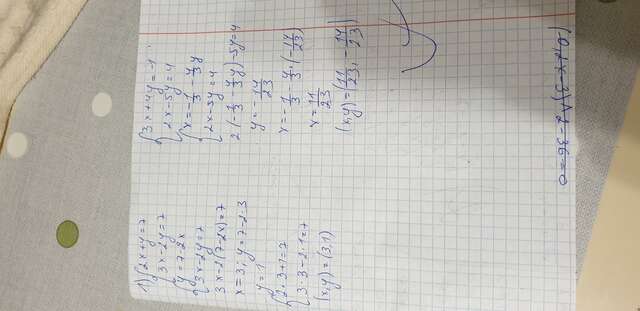 1) {2x+y=7
{3x-2y=7
{y=7-2x
{3x-2y=7
3x-2(7-2x)=7
x=3; y=7-2·3
y=1
{2·3+1=7
{3·3-2·1=7
(x,y)=(3,1)
{3x+4y=-1
{2x-5y=4
{x=-1/3-4/3y
{2x-5y=4
2(-1/3-4/3y)-5y=4
y=-14/23
x=-1/3-4/3·(-14/23)
x=11/23
(x,y)=(11/23,-14/23)